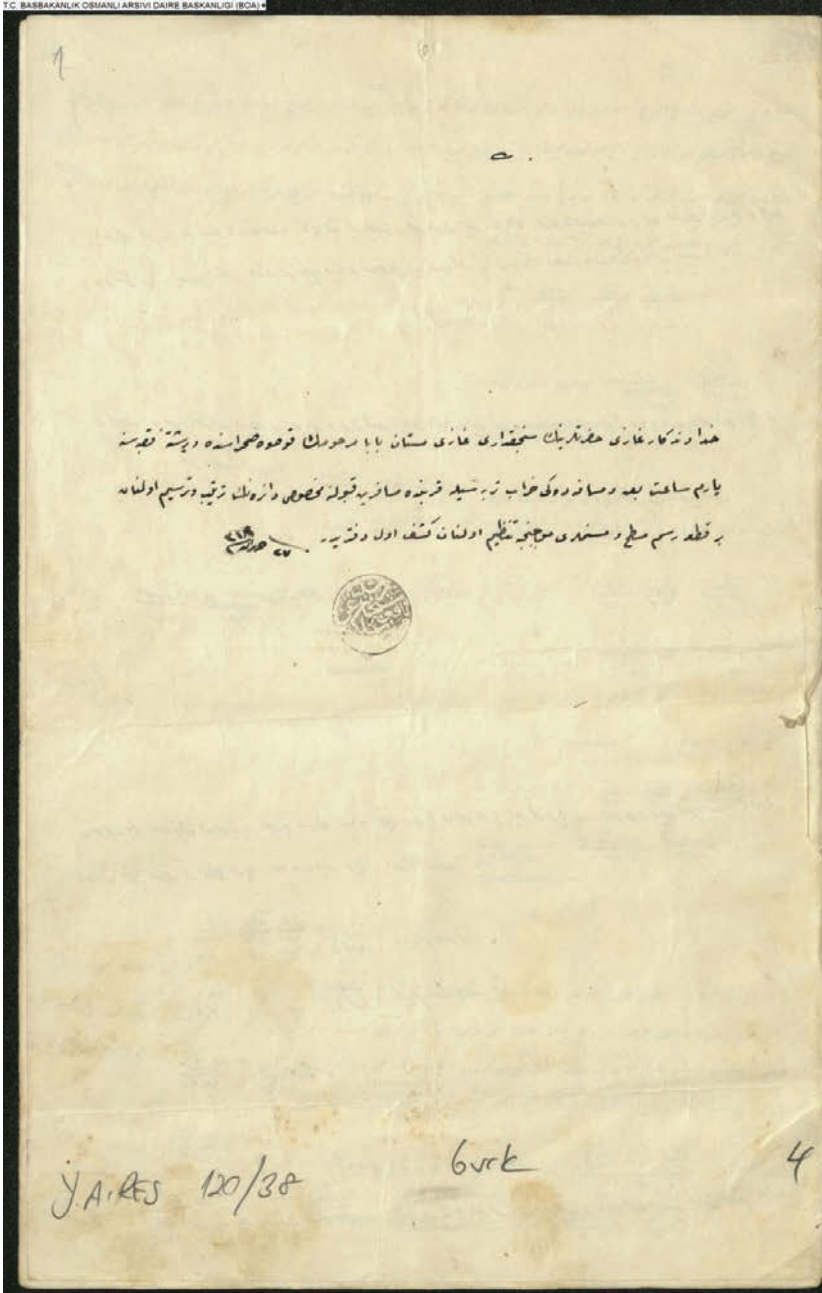 T.C. BASBAKANLIK OSMANLI ARSIVI DAIRE BASKANLIGI (BOA)
1
خداوندكار غازى حضرتلرينك سنجقدارى غازى مستان بابا مرحومك قوصوه صحراسنده و پرشتنه قصبه سنه
يارم ساعت بعد و مسافه ده كى خراب تربه سيله قربنده مسافرين قبولنه مخصوص دائره نك ترتيب و ترسيم اولنان
بر قطعه رسم مسطح و موجبنجه تنظيم اولنان كشف اول دفتريدر
Y.A.RES 120/38
6vrk
4